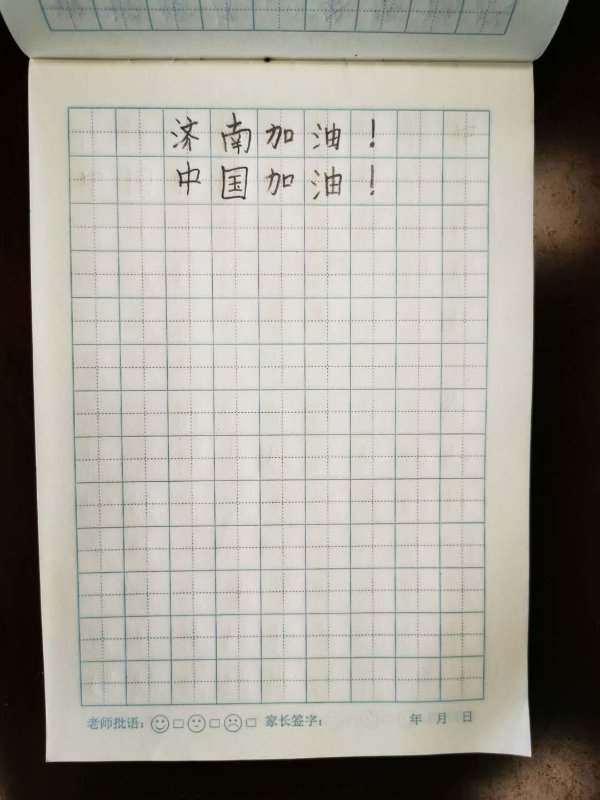 济南加油！
中国加油！
老师批语： 家长签字： 年 月 日